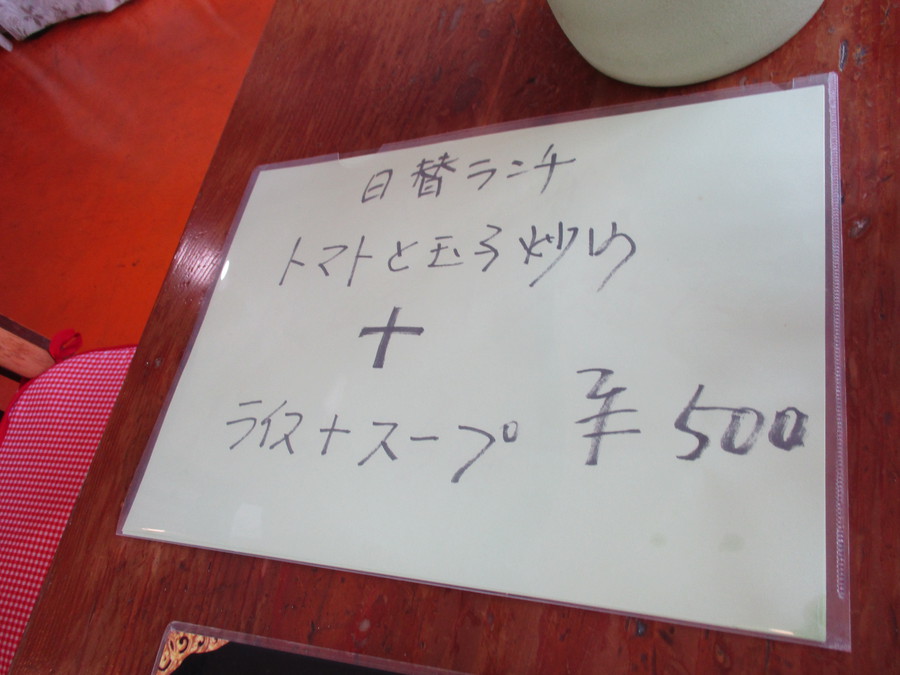 日替ランチ
トマトと玉子炒め
+
ライス+スープ ¥500